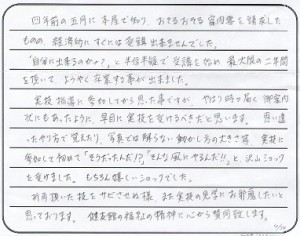 四年前の五月に本屋で知り、おそるおそる案内書を請求した
ものの、経済的にすぐには受講出来ませんでした。
「自分に出来るのかナ?」と半信半疑で受講を始め最大限の二年間
を頂いて、ようやく卒業する事が出来ました。
実技指導に参加してから思った事ですが、やはり時々届く御案内
状にもあったように、早目に実技を受けるべきだと思います。思い違
ったやり方で覚えたり、写真では解らない動かし方の大きさ等 実技に
参加して初めて「そうだったんだ!?」「そんな風にやるんだ!!」と、沢山ショック
を受けました。もちろん嬉しいショックでした。
お月頂いた技をサビさせぬ様、また実技の見学にお邪魔したいと
思っております。健友館の福祉の精神に心から賛同致します。